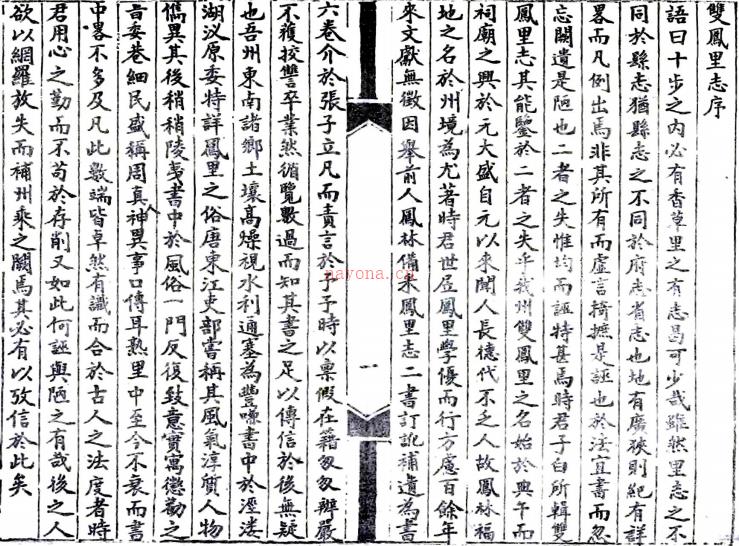 雙鳳里志序
語曰十步之内必有香草里之有志曷可少哉雖然里志之不
同於縣志猶縣志之不同於府志省志也地有廣狹則紀有詳
畧而凡例出焉非其所有而虛言掎摭是誣也於法宜書而忽
忘闕遺是陋也二者之失惟均而誣特甚焉時君子白所輯雙
鳳里志其能鑒於二者之失乎我州雙鳳里之名始於典午而
祠廟之興於元大盛自元以來聞人長德代不乏人故鳳林福
地之名於州境為尤著時君世居鳳里學優而行方慮百餘年
來文獻無徵因舉前人鳳林備采鳳里志二書訂訛補遺為書
一
六卷介於張子立凡而責言於予予時以稟假在籍匆匆辦嚴
不獲挍讐卒業然循覽數過而知其書之足以傳信於後無疑
也吾州東南諸鄉土壤高燥視水利通塞為豐嗛書中於涇漊
湖泖原委特詳鳳里之俗唐東江吏部嘗稱其風氣淳質人物
儁異其後稍稍陵夷書中於風俗一門反復致意實寓懲勸之
旨委巷細民盛稱周真人神異事口傳耳熟里中至今不衰而書
中畧不多及凡此數端皆卓然有識而合於古人之法度者時
君用心之勤而不苟於存削又如此何誣與陋之有哉後之人
欲以網羅放失而補州乘之闕焉其必有以攷信於此矣
nayona.cn